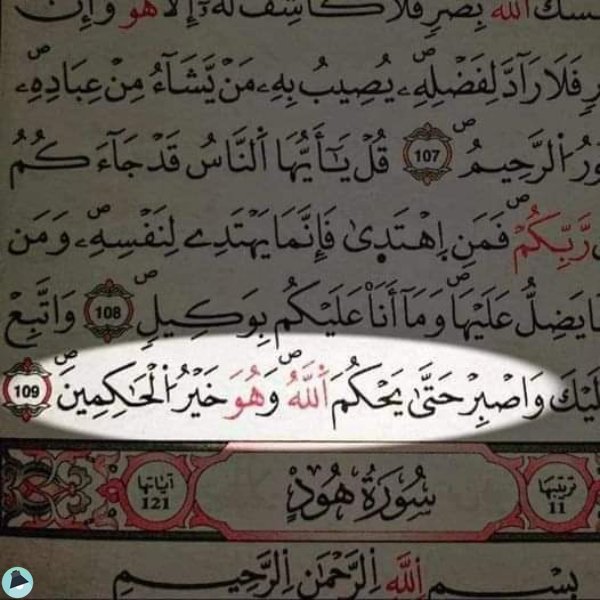 الله بِضُرٍّ فَلَا كَاشِفَ لَهُۥٓ إِلَّا هُوَ وَإِنْ
فَلَا رَآدَّ لِفَضْلِهِۦ يُصِيبُ بِهِۦ مَنْ يَّشَآءُ مِنْ عِبَادِهِۦ
اُ۬لرَّحِيمُ 107 قُلْ يَٰٓأَيُّهَا اَ۬لنَّاسُ قَدْ جَآءَكُمُ
رَّبِّكُمْ فَمَنِ اِ۪هْتَد۪ىٰ فَإِنَّمَا يَهْتَدِے لِنَفْسِهِۦ وَمَن
يَضِلُّ عَلَيْهَا وَمَآ أَنَا۠ عَلَيْكُم بِوَكِيلٍ 108 وَاتَّبِعْ
وَاصْبِرْ حَتَّىٰ يَحْكُمَ اَ۬للَّهُ وَهُوَ خَيْرُ اُ۬لْحَٰكِمِينَ 109
ترتيبها 11 سُورَةُ هُودٍ آياتها 121
بِسْمِ اِ۬للَّهِ اِ۬لرَّحْمَٰنِ اِ۬لرَّحِيمِ